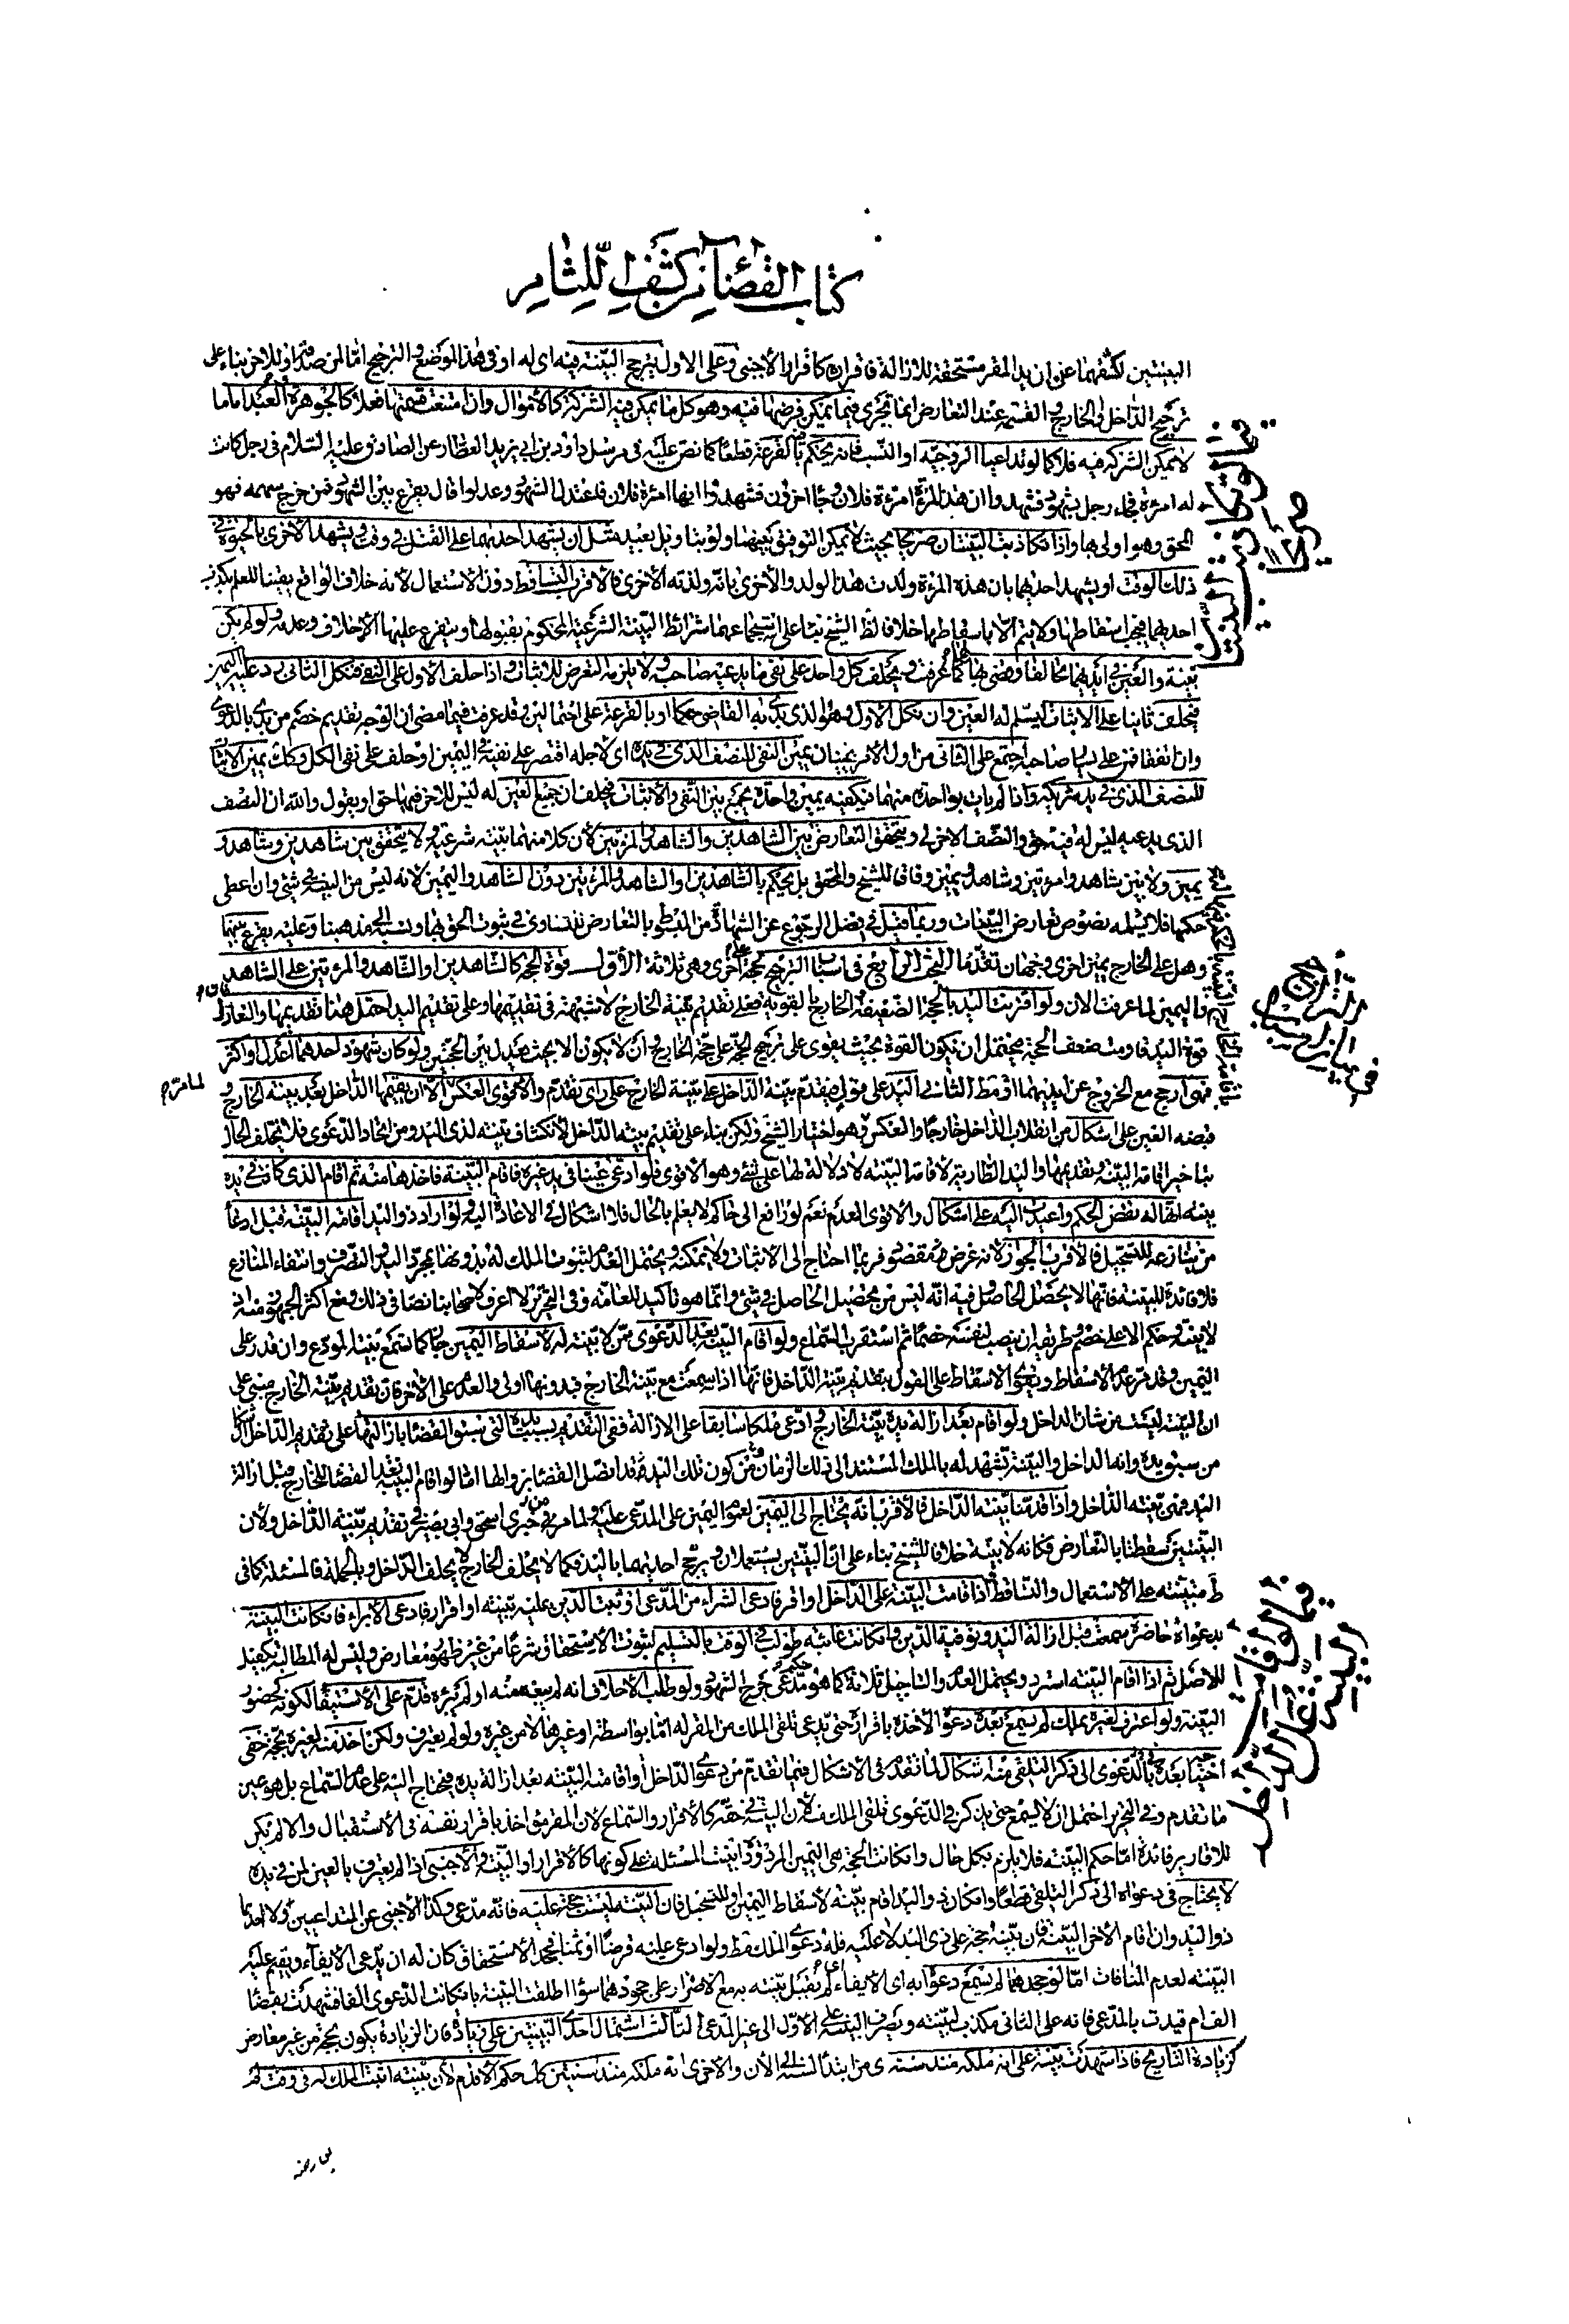 كتاب القضاء من كشف اللثام
البينتين لكشفهما عن ان يد المقر مستحقة للازالة فاقراره كاقرار الاجنبى وعلى الاول يترجح البينة فيه اى له او فى هذا الموضع والترجيح امّا لمن صدقه او للاخر بناء على
ترجيح الداخل او الخارج والقسمة عند التعارض انما تجرى فيما يمكن فرضها فيه وهو كل ما يمكن فيه الشركة كالاموال وان امتنعت قسمتها فعلا كالجوهرة والعبد اما ما
لا يمكن الشركة فيه فلا كما لو تداعيا الزوجية او النسب فانه يحكم فيه بالقرعة قطعا كما نص عليه فى مرسل داود بن ابى يزيد العطار عن الصادق عليه السلام فى رجل كانت
له امرءة فجاء رجل بشهود فشهدوا ان هذه المرءة امرءة فلان وجاء اخرون فشهدوا انها امرءة فلان فاعتدل الشهود وعدلوا قال يقرع بين الشهود فمن خرج سهمه فهو
المحق وهو اولى بها واذا تكاذبت البينتان صريحا بحيث لا يمكن التوفيق بينهما ولو بتاويل بعيد مثل ان يشهد احديهما على القتل فى وقت ويشهد الاخرى بالحيوة فى
ذلك الوقت او يشهد احديهما بان هذه المرءة ولدت هذا الولد والاخرى بانه ولدته الاخرى فالاقرب التساقط دون الاستعمال لانه خلاف الواقع يقينا للعلم بكذب
احديهما فيجب اسقاطها ولا يتم الا باسقاطهما خلافا لظ الشيخ بناء على استجماعهما شرائط البينة الشرعية المحكوم بقبولها ويتفرع عليهما الاحلاف وعدمه ولو لم يكن
بينة والعين فى ايديهما تحالفا وقضى بها لهما كما عرفت ويحلف كل واحد على نفى ما يدعيه صاحبه ولا يلزمه التعرض للاثبات واذا حلف الاول على النفى فنكل الثانى رد عليه اليمين
فيحلف ثانيا على الاثبات ليسلم له العين وان نكل الاول وهو الذى بدء به القاضى تحكما او بالقرعة على احتمالين وقد عرفت فيما مضى ان الوجه تقديم خصم من بدء بالدعوى
للنصف الذى فى يد شريكه واذا لم يات بواحدة منهما فيكفيه يمين واحدة يجمع بين النفى والاثبات فيحلف ان جميع العين له ليس للاخر فيها حق او يقول والله ان النصف
الذى يدعيه ليس له فيه حق والنصف الاخر لى ويتحقق التعارض بين الشاهدين والشاهد والمرءتين لان كلا منهما بينة شرعية ولا يتحقق بين شاهدين وشاهد و
يمين ولا بين شاهد وامرءتين وشاهد ويمين وفاقا للشيخ والمحقق بل يحكم بالشاهدين او الشاهد والمرءتين دون الشاهد واليمين لانه ليس من البينة فى شئ وان اعطى
حكمها فلا يشمله نصوص تعارض البينات وربما قيل فى فصل الرجوع عن الشهادة من المبسوط بالتعارض للتساوى فى ثبوت الحق بهما ونسبه الى مذهبنا وعليه يقرع بينهما
وهل على الخارج يمين اخرى وجهان تقدما البحث الرابع فى اسباب الترجيح لحجة على اخرى وهى ثلثة الاول قوة الحجة كالشاهدين او الشاهد والمرءتين على الشاهد
واليمين لما عرفت الان ولو اقترنت اليد بالحجة الضعيفة والخارج بالقوية فعلى تقديم بينة الخارج لا شبهة فى تقديمها وعلى تقديم اليد احتمل هنا تقديمها والتعادل
قوة اليد قاومت ضعف الحجة فيحتمل ان تكون القوة بحيث يقوى على ترجيح الحجة على حجة الخارج وان لا يكون الا بحيث تعدل بين الحجتين ولو كان شهود احدهما اعدل او اكثر
قبضه العين على اشكال من انقلاب الداخل خارجا والعكس وهو اختيار الشيخ ولكن بناء على تقديم بينة الداخل لانكشاف بينة لذى اليد ومن اتحاد الدعوى فلا يختلف الحال
بتاخير اقامة البينة وتقديمها واليد الطارية لاقامة البينة لا دلالة لها على شئ وهو الاقوى فلو ادعى عينا فى يد غيره فاقام البينة فاخذها منه ثم اقام الذى كانت فى يده
بينة انها له نقض الحكم واعيدت اليه على اشكال والاقوى العدم نعم لو ترافع الى حاكم لا يعلم بالحال فلا اشكال فى الاعادة اليه ولو اراد ذو اليد اقامة البينة قبل ادعاء
من ينازعه للتسجيل فالاقرب الجواز لانه غرض مقصود فربما احتاج الى الاثبات ولا يمكنه ويحتمل العدم لثبوت الملك له بدونها بمجرد اليد والتصرف وانتفاء المنازع
فلا فائدة للبينة فانها لا يحصل الحاصل وفيه انه ليس من تحصيل الحاصل فى شئ وانما هو تاكيد للعامة وفى التحرير لا اعرف لاصحابنا نصا فى ذلك ومنع اكثر الجمهور منه اذ
لا بينة وحكم الا على خصم وطريقه ان ينصب لنفسه خصما ثم استقرب السماع ولو اقام البينة بعد الدعوى ممن لا بينة له لاسقاط اليمين جاز كما تسمع بينة المودع وان قدر على
اليمين وقد مر عدم الاسقاط ويقوى الاسقاط على القول بتقديم بينة الداخل فانها اذا سمعت مع بينة الخارج فبدونها اولى والعدم على الاخر فان تقديم بينة الخارج مبنى على
ان البينة ليست من شان الداخل ولو اقام بعد ازالة يده ببينة الخارج وادعى ملكا سابقا على الازالة ففى التقديم بسبب يده التى سبق القضاء بازالتها على تقديم الداخل اشكال
من سبق يده وانه الداخل والبينة تشهد له بالملك المستند الى ذلك الزمان ومن كون تلك اليد قد اتصل القضاء بزوالها اما لو اقام البينة بعد القضاء للخارج قبل ازالة
اليد فهى بينة الداخل واذا قدمنا بينة الداخل فالاقرب انه يحتاج الى اليمين لعموم اليمين على المدعى عليه ولما مر من خبرى اسحق وابى بصير فى تقديم بينة الداخل ولان
البينتين سقطتا بالتعارض فكانه لا بينة خلافا للشيخ بناء على ان البينتين يستعملان ويرجح احديهما باليد فكما لا يحلف الخارج لا يحلف الداخل وبالجملة فالمسئلة كما فى
ط مبنية على الاستعمال والتساقط واذا قامت البينة على الداخل او اقر فادعى الشراء من المدعى او ثبت الدين عليه ببينة او اقرار فادعى الابراء فان كانت البينة
بدعواه حاضرة سمعت قبل ازالة اليد وتوفية الدين وان كانت غائبة طولب فى الوقت بالتسليم لثبوت الاستحقاق شرعا من غير ظهور معارض وليس له المطالبة بكفيل
للاصل ثم اذا اقام البينة استرد ويحتمل العدم والتاجيل ثلثة كما هو حكم مدعى جرح الشهود ولو طلب الاحلاف انه لم يبعه منه او لم يبرءه قدم على الاستيفاء لكونه كحضور
البينة ولو اعترف لغيره بملك لم يسمع بعده دعواه لاخذه باقراره حتى يدعى تلقى الملك من المقر له اما بواسطة او غيرها لا من غيره ولو لم يعترف ولكن اخذ منه لغيره بحجة ففى
احتياجه بعده فى الدعوى الى ذكر التلقى منه اشكال لما تقدم فى الاشكال فيما تقدم من دعوى الداخل واقامته البينة بعد ازالة يده فيحتاج اليه على عدم السماع بل هو عين
ما تقدم وفى التحرير احتمل ان لا يسمع حتى يذكر فى الدعوى تلقى الملك لان البينة فى حقه كالاقرار والسماع لان المقر مؤاخذ باقرار نفسه فى الاستقبال والا لم يكن
للاقارير فائدة اما حكم البينة فلا يلزم بكل حال وان كانت الحجة هى اليمين المردودة ابتنت المسئلة على كونها كالاقرار او البينة والاجنبى اذا لم يعترف بالعين لمن فى يده
لا يحتاج فى دعواه الى ذكر التلقى قطعا وان كان ذو اليد اقام بينة لاسقاط اليمين او للتسجيل فان البينة ليست حجة عليه فانه مدعى وكذا الاجنبى عن المتداعيين
ذو اليد وان اقام الاخر البينة فان بينته حجة على ذى اليد لا عليه فله دعوى الملك فقط ولو ادعى عليه قرضا او ثمنا فجحد الاستحقاق كان له ان يدعى الايفاء ويقيم عليه
البينة لعدم المنافات اما لو جحدهما لم يسمع دعواه به اى الايفاء ولم يقبل بينته به مع الاصرار على جحودهما سواء اطلقت البينة بان كانت الدعوى الفا فشهدت بقضاء
الف ام قيدت بالمدعى فانه على الثانى مكذب لبينته ويصرف البينة على الاول الى غير المدعى الثالث اشتمال احدى البينتين على زيادة فان الزيادة يكون بحجة من غير معارض
كزيادة التاريخ فاذا شهدت بينة على انه ملكه منذ سنة اى من ابتداء السنة الى الان والاخرى انه ملكه منذ سنتين حكم للاقدم لان بينته اثبتت الملك له فى وقت لم